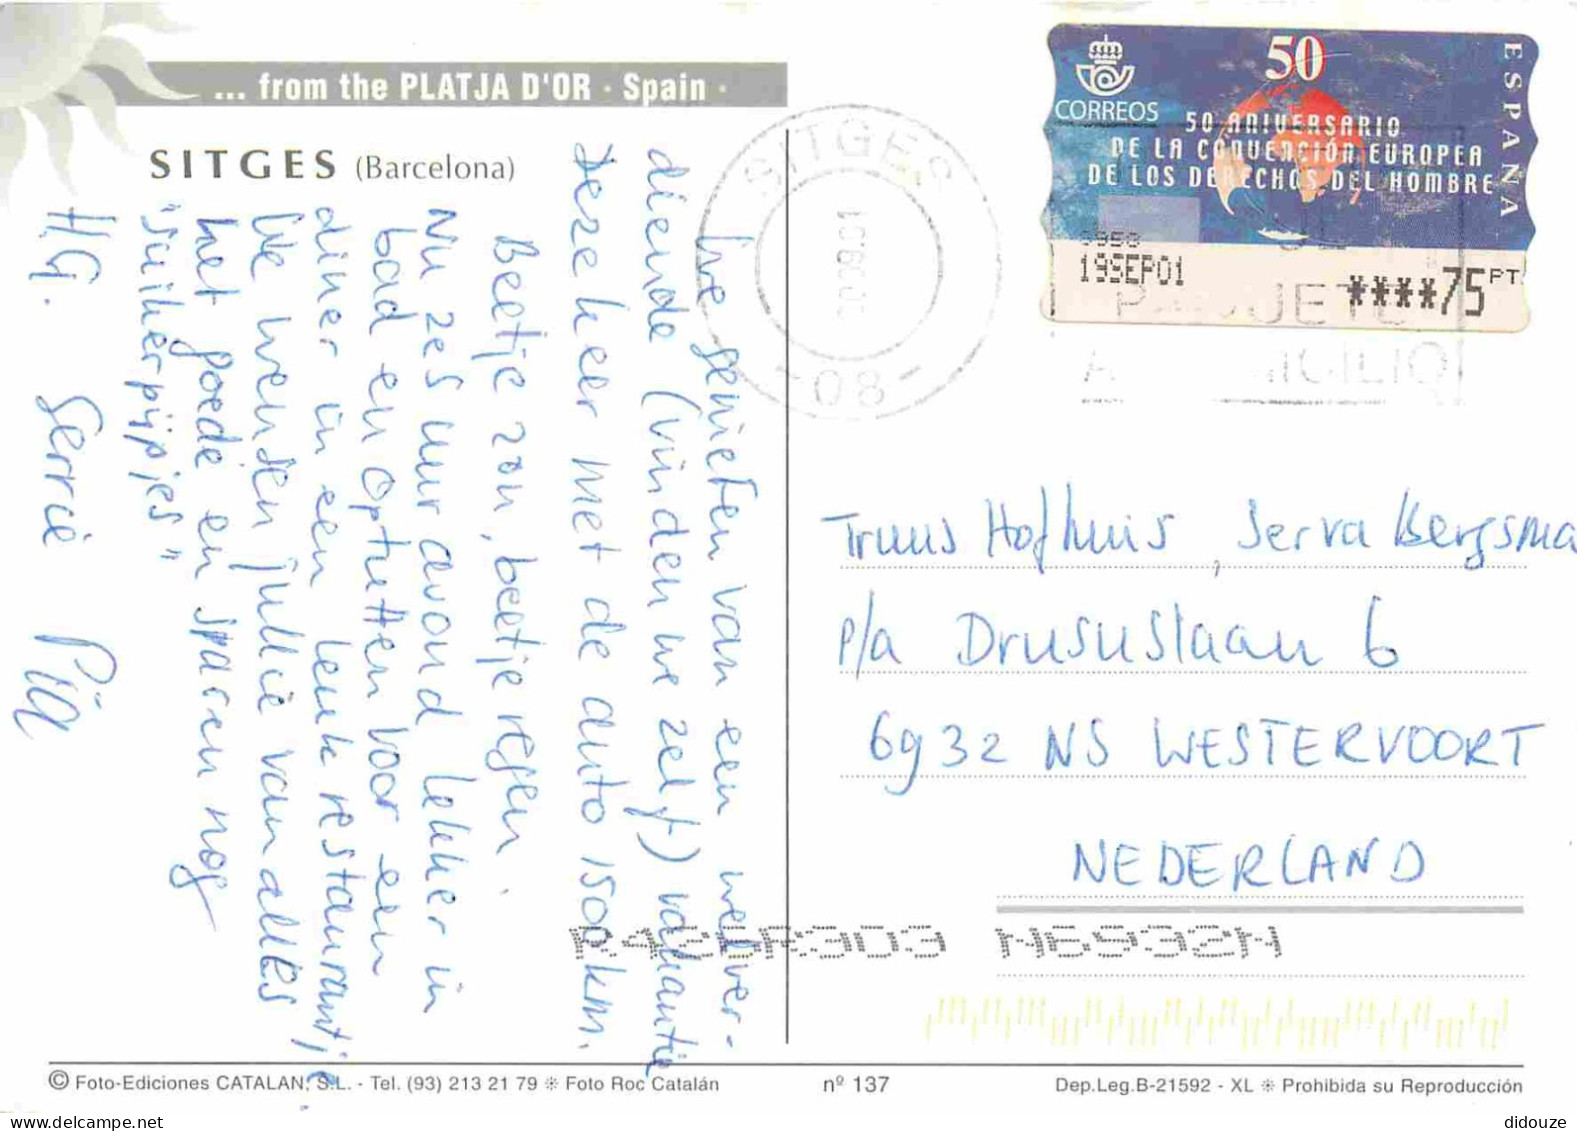 ... from the PLATJA D'OR · Spain ·
SITGES (Barcelona)
We genieten van een welver-
diende (vinden we zelf) vakantie
Deze keer met de auto 1500km.
Beetje zon, beetje regen.
Nu zes uur avond lekker in
bad en optutten voor een
diner in een leuk restaurantje
We wensen jullie van alles
het goede en sparen nog
"suikerpijpjes"
H.G. Gerrie Piet
CORREOS
50
50 ANIVERSARIO
DE LA CONVENCIÓN EUROPEA
DE LOS DERECHOS DEL HOMBRE
ESPAÑA
19SEP01
****75 PT
SITGES
-08-
Truus Hofhuis, Serva Bergsma
p/a Drususlaan 6
6932 NS WESTERVOORT
NEDERLAND
N6932N
© Foto-Ediciones CATALAN, S.L. - Tel. (93) 213 21 79 ※ Foto Roc Catalán
nº 137
Dep.Leg.B-21592 - XL ※ Prohibida su Reproducción
didouze